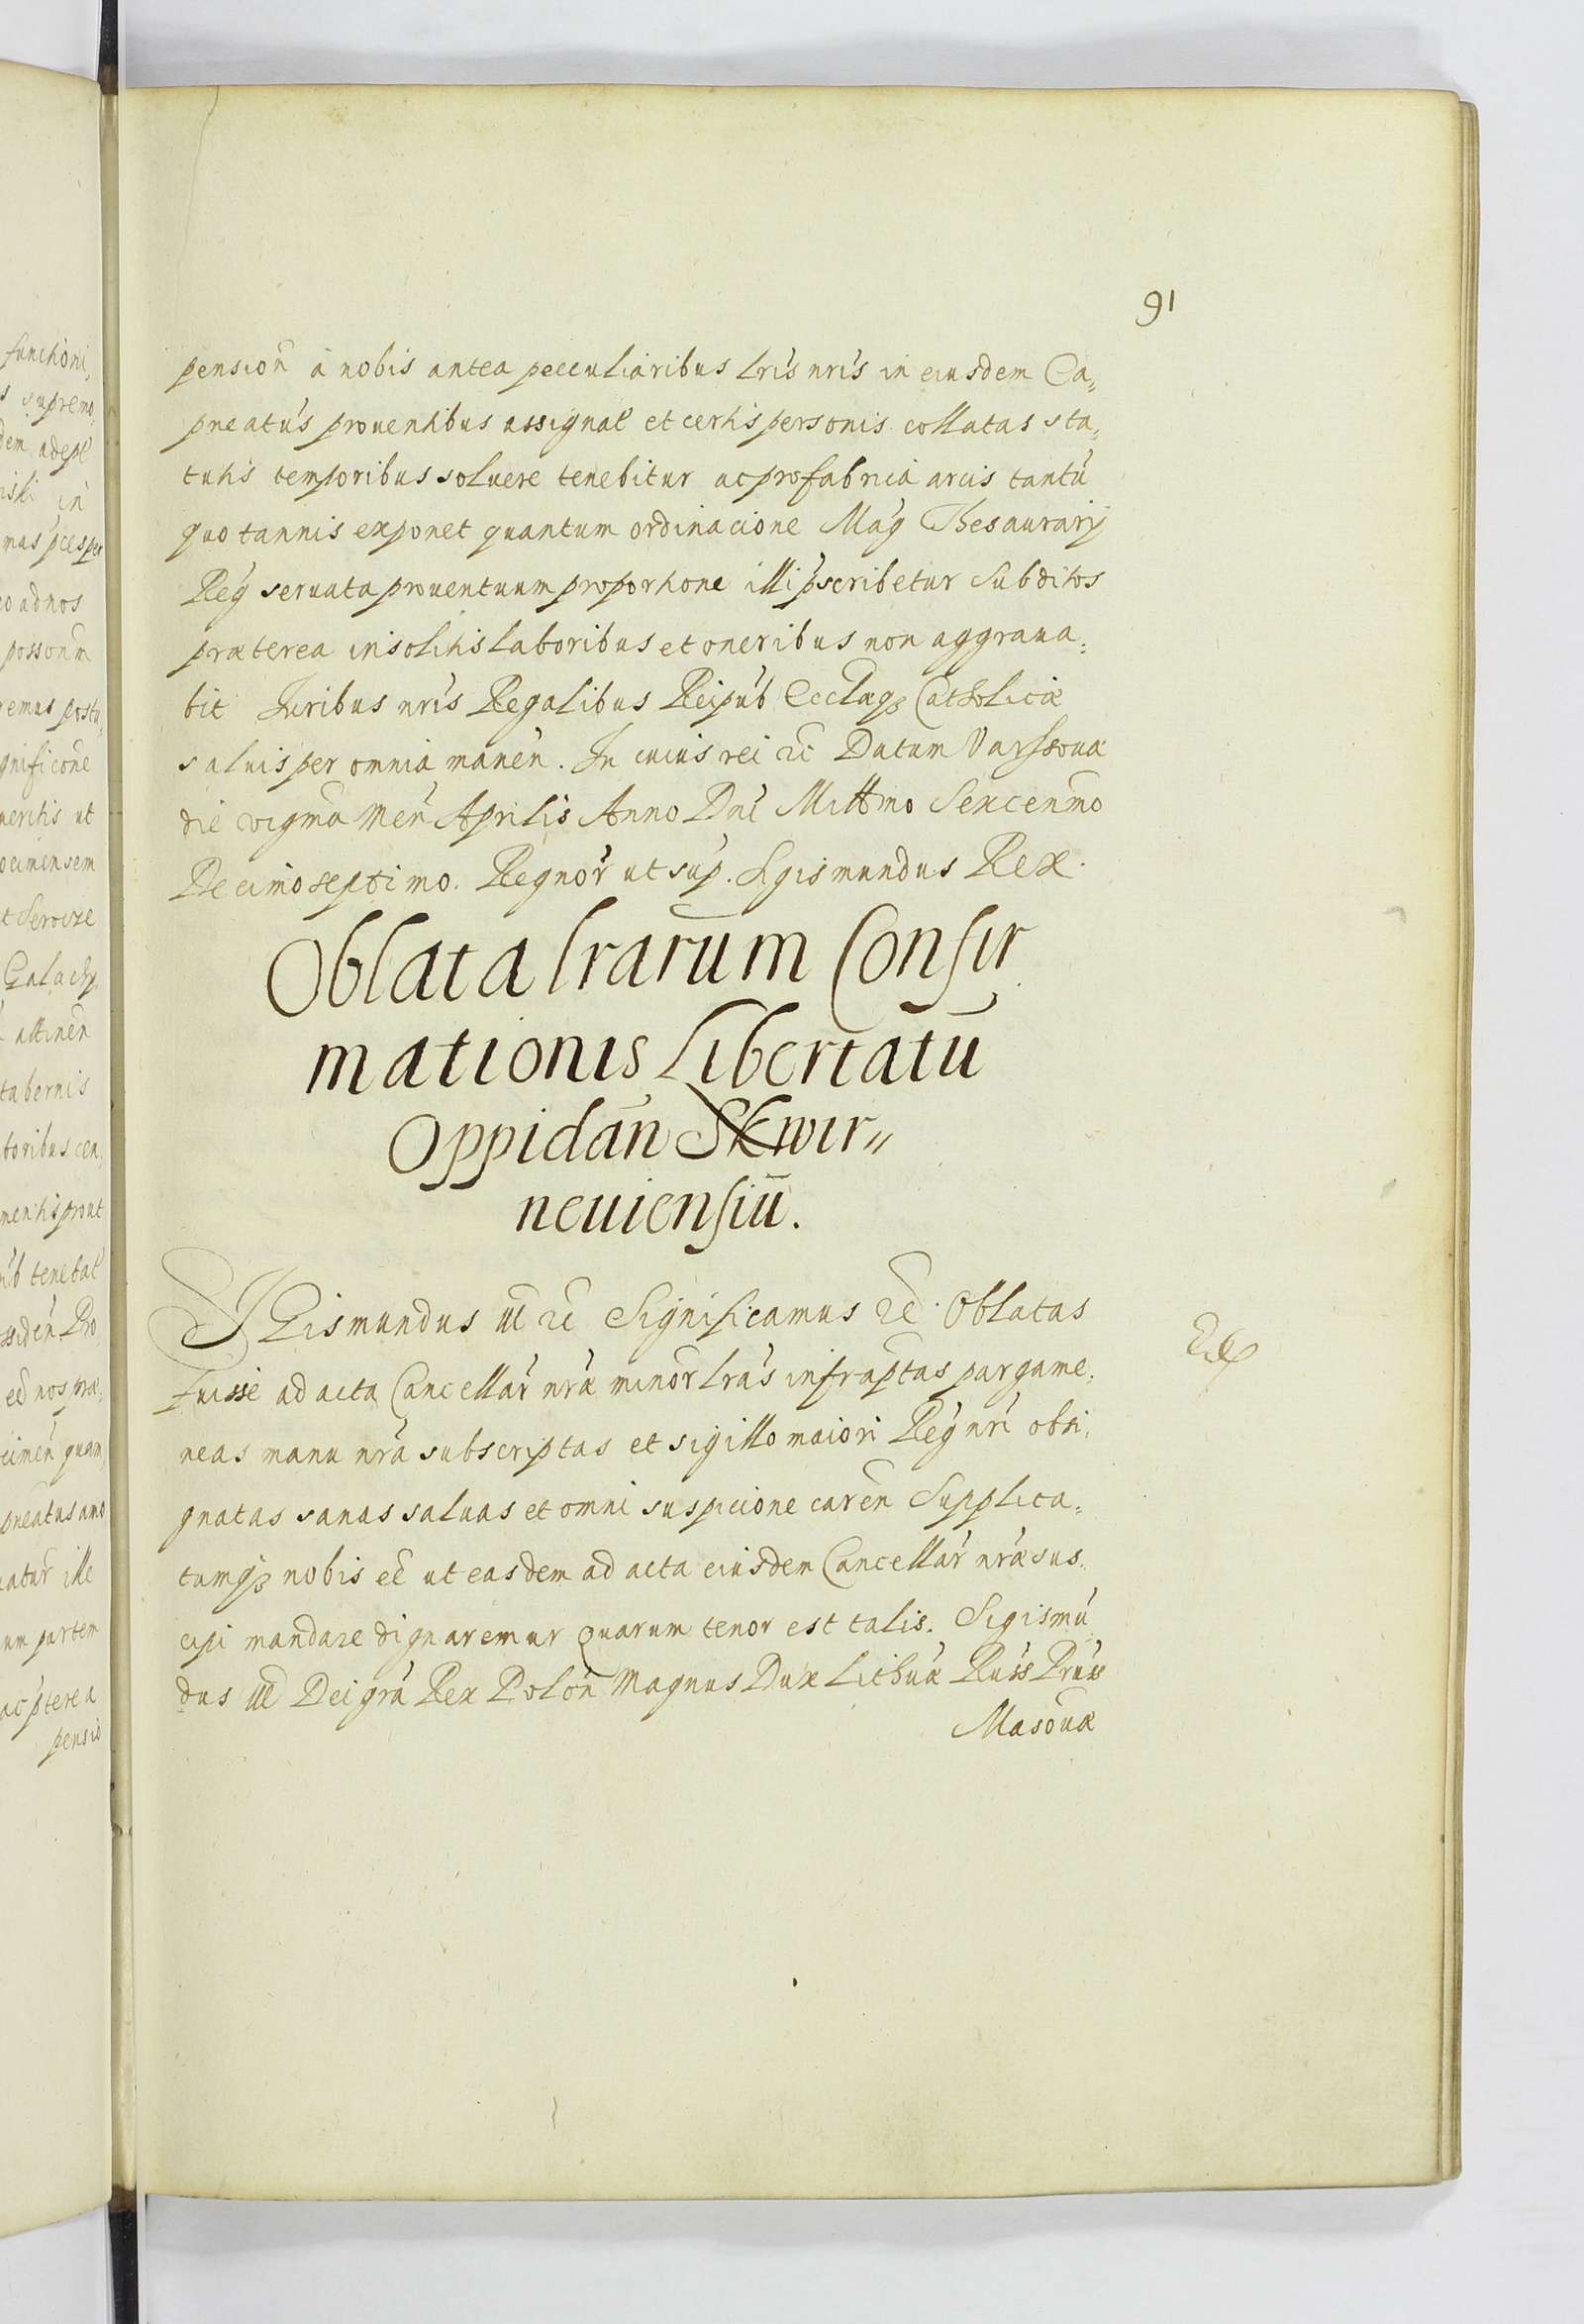 91
pension̄ á nobis antea peculiaribus lris nris in eiusdem Ca,
pneatus prouentibus assignat et certis personis collatas sta,
tutis temporibus soluere tenebitur ac pro fabrica arcis tantū
quotannis exponet quantum ordinacione Mag Thesaurarij
Reg seruata prouentuum proportione illi pscribetur Subditos
præterea insolitis laboribus et oneribus non aggraua,
bit Juribus nris Regalibus Reipub Ecclæq₃ Catholicæ
saluis per omnia manen̄. In cuius rei Datum Varssouæ
die vigma Men̄ Aprilis Anno Dni Millmo Sexcenmo
Decimoseptimo. Regnor̄ ut sup. Sgismundus Rex.
Oblata lrarum Confir
mationis Libertatū
Oppidan̄ Skwir〃
neuiensiū.
SIGismundus Significamus Oblatas
fuisse ad acta Cancellar̄ nræ minor̄ lras infraptas pargame,
neas manu nra subscriptas et sigillo maiori Reg nri obsi,
gnatas sanas saluas et omni suspicione caren̄ Supplica,
tumq₃ nobis eē ut easdem ad acta eiusdem Cancellar̄ nræ sus,
cipi mandare dignaremur Quarum tenor est talis. Sigismū
dus Dei gra Rex Polon̄ Magnus Dux Lithuæ Russ Prus
Masouæ
functioni,
s supremo,
dem adept
in
eo ad nos
possonm
remus postu,
gnificone
meritis ut
ocimensem
Galachy
attinen̄
tabernis
toribus cen,
mentis prout
tenebat
eē nos præ,
cimen̄ quam,
pneatus
ille
um partem
ac pterea
pensio